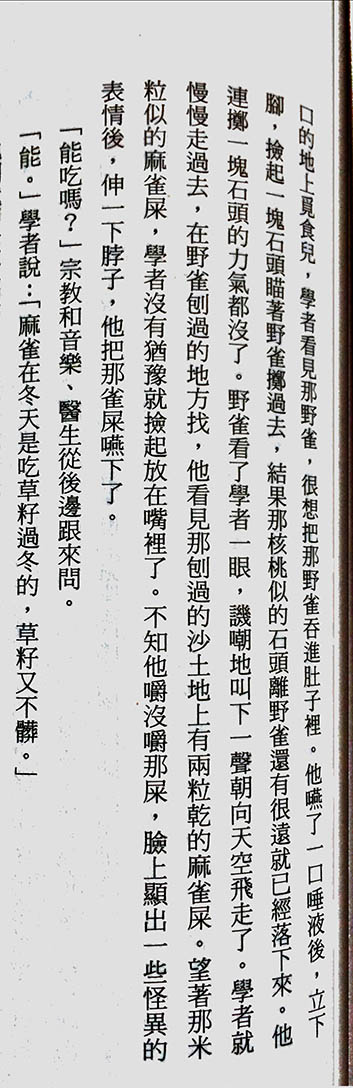 口的地上覓食兒，學者看見那野雀，很想把那野雀吞進肚子裡。他嚥了一口唾液後，立下
腳，撿起一塊石頭瞄著野雀擲過去，結果那核桃似的石頭離野雀還有很遠就已經落下來。他
連擲一塊石頭的力氣都沒了。野雀看了學者一眼，譏嘲地叫下一聲朝向天空飛走了。學者就
慢慢走過去，在野雀刨過的地方找，他看見那刨過的沙土地上有兩粒乾的麻雀屎。望著那米
粒似的麻雀屎，學者沒有猶豫就撿起放在嘴裡了。不知他嚼沒嚼那屎，臉上顯出一些怪異的
表情後，伸一下脖子，他把那雀屎嚥下了。
「能吃嗎？」宗教和音樂、醫生從後邊跟來問。
「能。」學者說：「麻雀在冬天是吃草籽過冬的，草籽又不髒。」